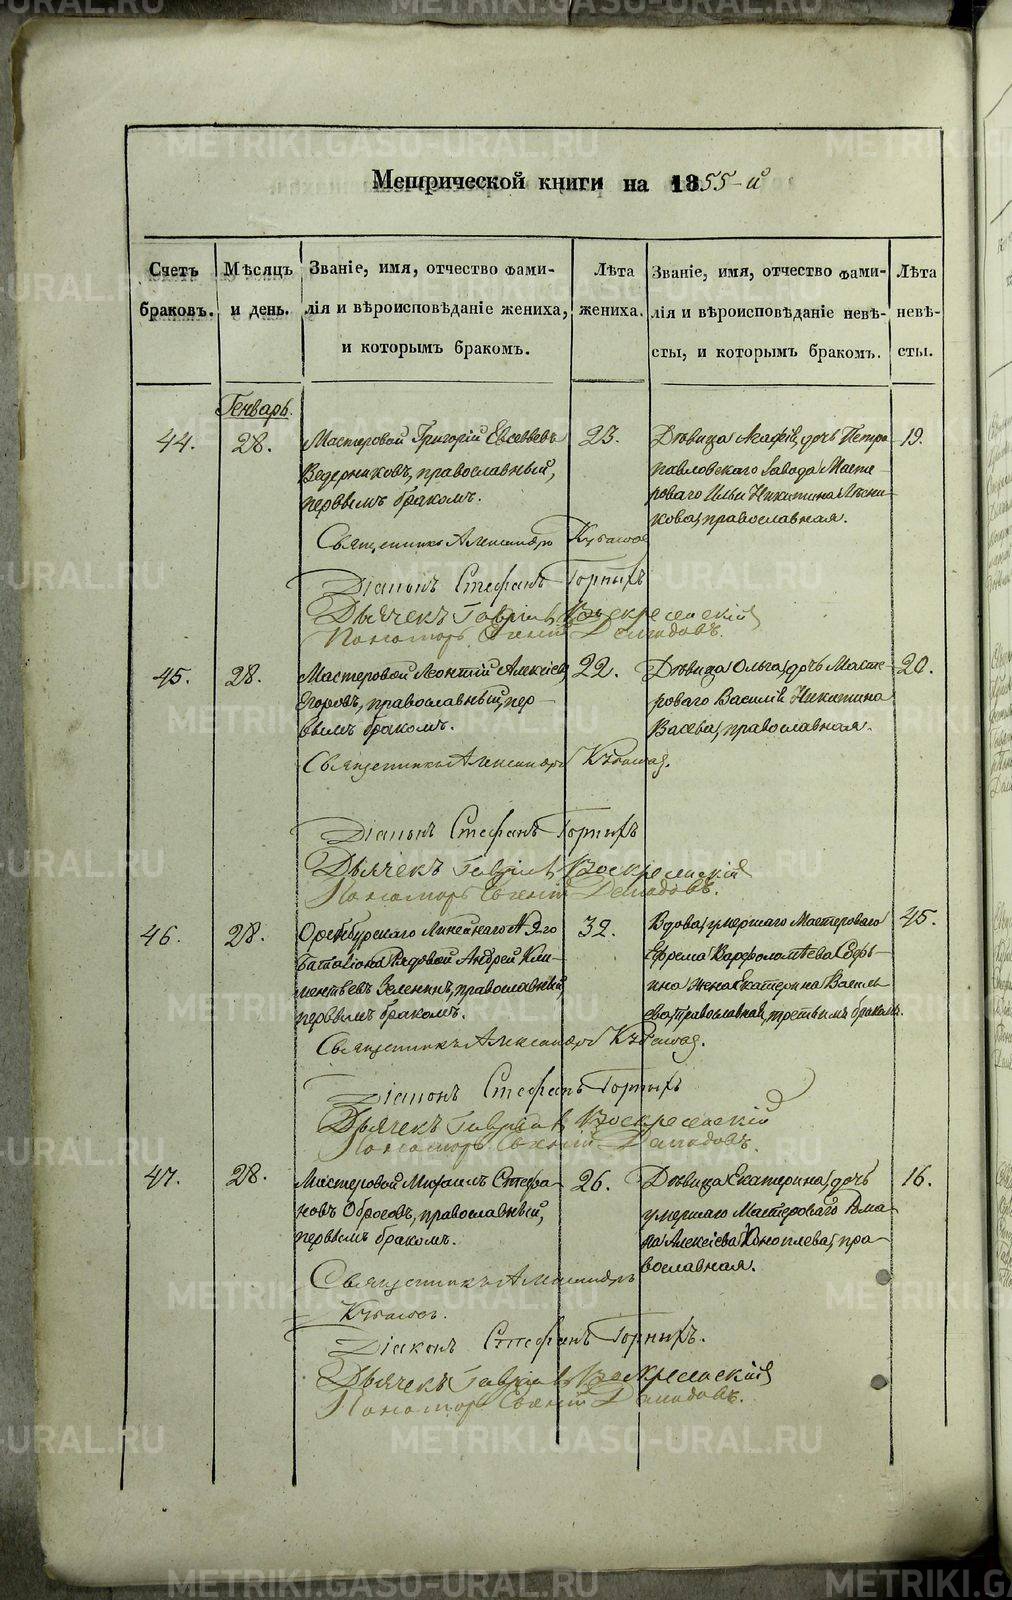 METRIKI.GASO-URAL.RU
Метрической книги на 1855-й
Счетъ браковъ.
Мѣсяцъ и день.
Званіе, имя, отчество фами-
лія и вѣроисповѣданіе жениха,
и которымъ бракомъ.
Лѣта жениха.
Званіе, имя, отчество фами-
лія и вѣроисповѣданіе невѣ-
сты, и которымъ бракомъ.
Лѣта невѣ-
сты.
Генварь.
44. 28. Мастеровой Григорій Евсѣевъ 23. Дѣвица Агафія, дочь Петро 19.
Ведерниковъ, православный, павловскаго Завода Масте-
первымъ бракомъ. роваго Ильи Никитина
православная.
Священникъ Александръ
Діаконъ Стефанъ Горныхъ
Дьячекъ Гавріилъ Воскресенскій
Пономарь Евгеній Демидовъ.
45. 28. Мастеровой Леонтій Алексѣевъ 22. Дѣвица Ольга, дочь Масте- 20.
Егоровъ, православный, пер- роваго Василія Никитина
вымъ бракомъ. Васева, православная.
Священникъ Александръ
Діаконъ Стефанъ Горныхъ
Дьячекъ Гавріилъ Воскресенскій
Пономарь Евгеній Демидовъ.
46. 28. Оренбургскаго Линейнаго № 2го 32. Вдова, умершаго Мастероваго 45.
Баталіона Рядовой Андрей Кли- Ефрема Варфоломѣева
ментьевъ Зеленинъ, православный, жена Екатерина Василь-
первымъ бракомъ. ева, православная, третьимъ бракомъ.
Священникъ Александръ
Діаконъ Стефанъ Горныхъ
Дьячекъ Гавріилъ Воскресенскій
Пономарь Евгеній Демидовъ.
47. 28. Мастеровой Михаилъ Стефа- 26. Дѣвица Екатерина, дочь 16.
новъ Обросовъ, православный, умершаго Мастероваго Рома-
первымъ бракомъ. на Алексѣева Коноплева, пра-
вославная.
Священникъ Александръ
Діаконъ Стефанъ Горныхъ.
Дьячекъ Гавріилъ Воскресенскій
Пономарь Евгеній Демидовъ.